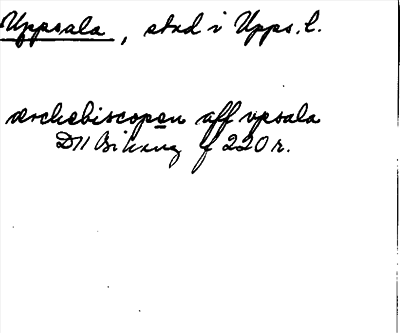 Uppsala, stad i Upps. l.
ærchebiscopen aff vpsala
D11 Bihang f 220 r.